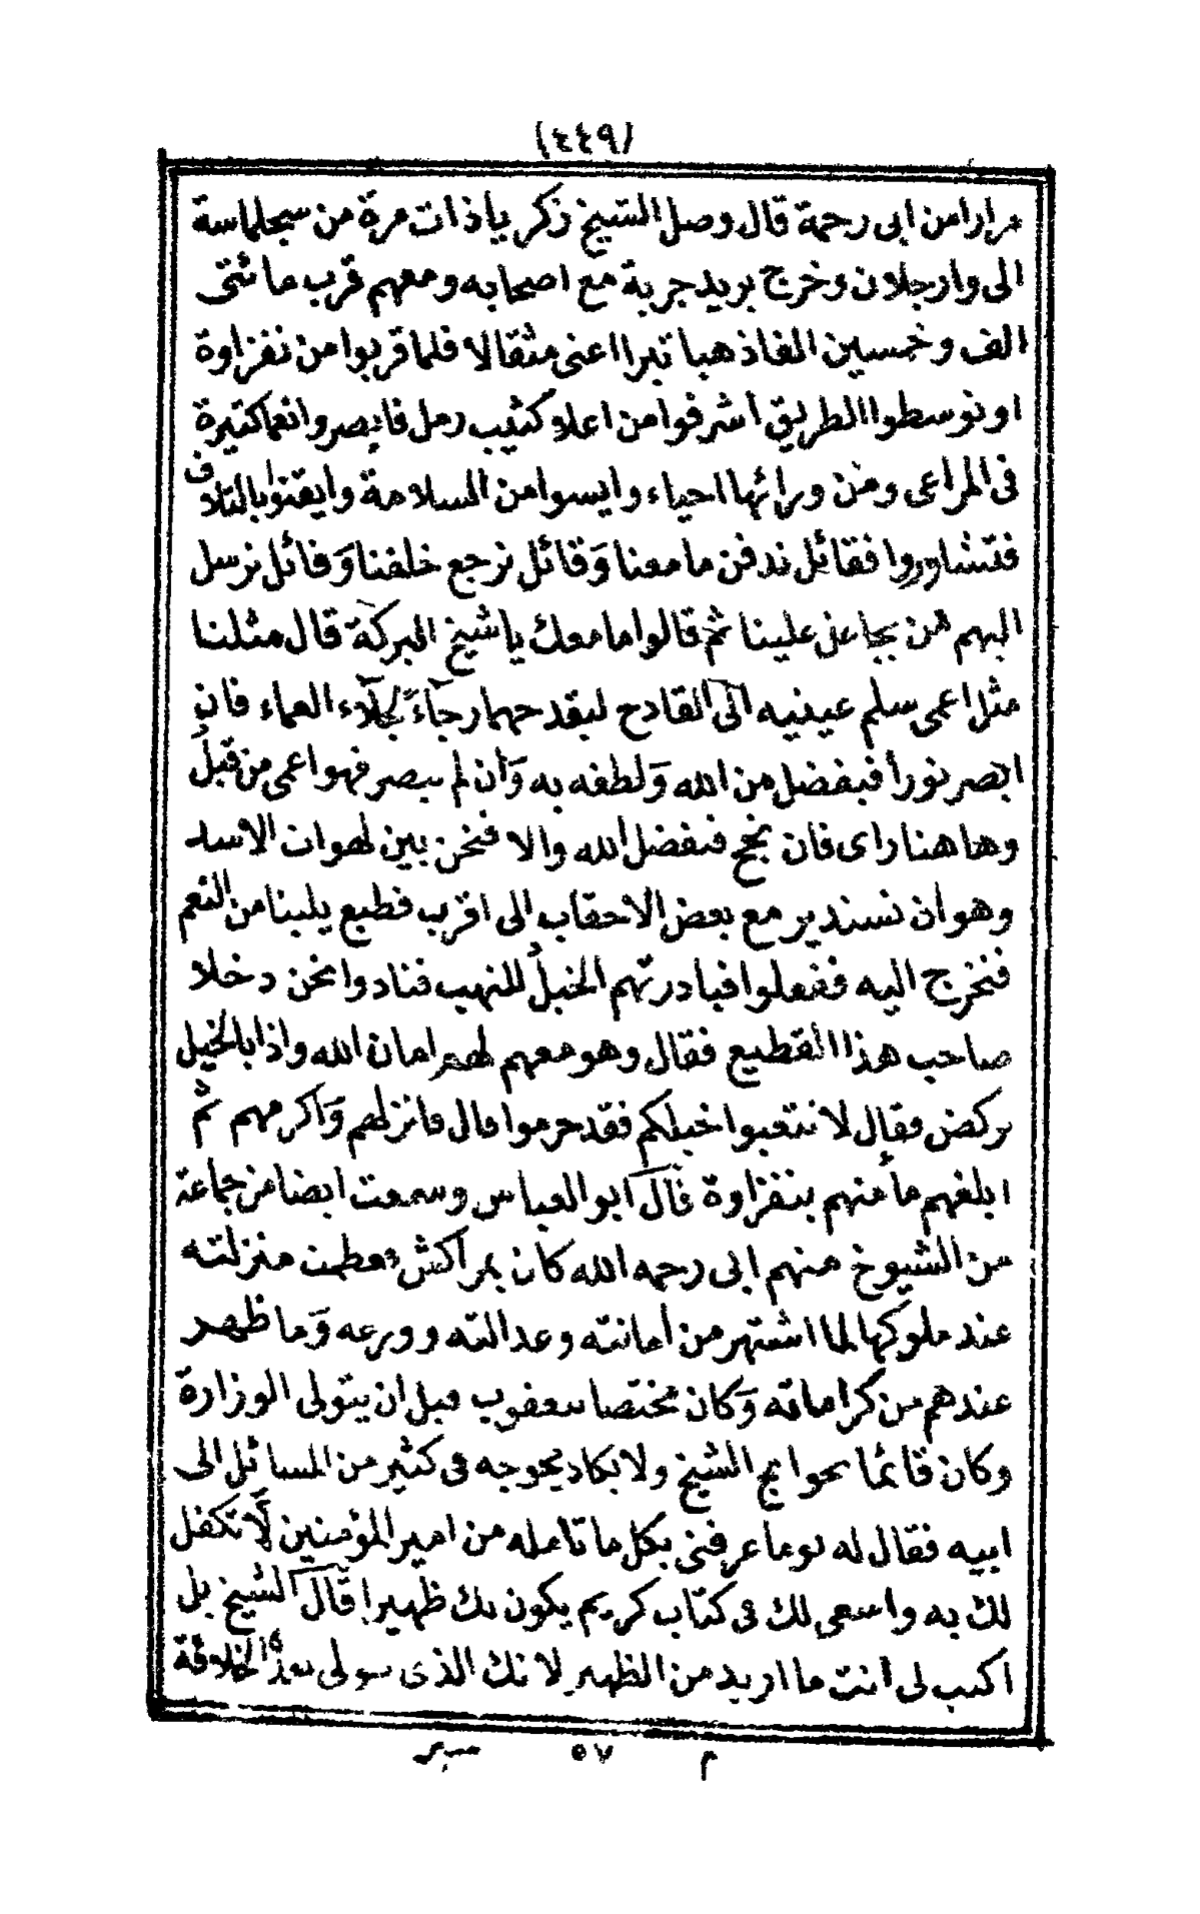 (٤٤٩)
مرارا من ابى رحمة قال وصل الشيخ زكرياذات مرة من سجلماسة
الى وارجلان وخرج يريد جربة مع اصحابه ومعهم قرب مائتى
الف وخمسين الفا ذهبا تبرا اعنى مثقالا فلما قربوا من نفزاوة
او توسطوا الطريق أشرفوا من اعلا كثيب رمل فابصروا نعما كثيرة
فى المراعى ومن ورائها احياء وايسوا من السلامة وايقنوا بالتلاف
فتشاوروا فقائل ندفن ما معنا وَقائل نرجع خلفنا وَقائل نرسل
اليهم من يجاعل علينا ثم قالوا ما معك يا شيخ البركة قال مثلنا
مثل اعمى سلم عينيه الى القادح ليقدحهما رجاء لجلاء العماء فان
ابصر نورا فبفضل من الله وَلطفه به وَأن لم يبصر فهو اعمى من قبل
وها هنا راى فان نجح فبفضل الله والا فنحن بين لهوات الاسد
وهو ان نستدير مع بعض الاحقاب الى اقرب قطيع يلينا من النعم
فنخرج اليه ففعلوا فبادرتهم الخيل للنهيب فنادوا نحن دخلا
صاحب هذا القطيع فقال وهو معهم لهم امان الله واذا بالخيل
تركض فقال لا تتعبوا خيلكم فقد حرموا قال فانزلهم وَاكرمهم ثم
ابلغهم مأمنهم بنفزاوة قال ابو العباس وسمعت ايضا من جماعة
من الشيوخ منهم ابى رحمه الله كان بمراكش وعظمت منزلته
عند ملوكها لما اشتهر من أمانته وعدالته وورعه وَما ظهر
عندهم من كراماته وَكان مختصا بيعقوب قبل ان يتولى الوزارة
وكان قائما بحوايج الشيخ ولا يكاد يحوجه فى كثير من المسائل الى
ابيه فقال له يوما عرفنى بكل ما تأمله من امير المؤمنين لأتكفل
لك به واسعى لك فى كتاب كريم يكون لك ظهيرا قال الشيخ بل
اكتب لى أنت ما اريد من الظهير لانك الذى ستولى بعد الخلافة
م ٥٧ سير